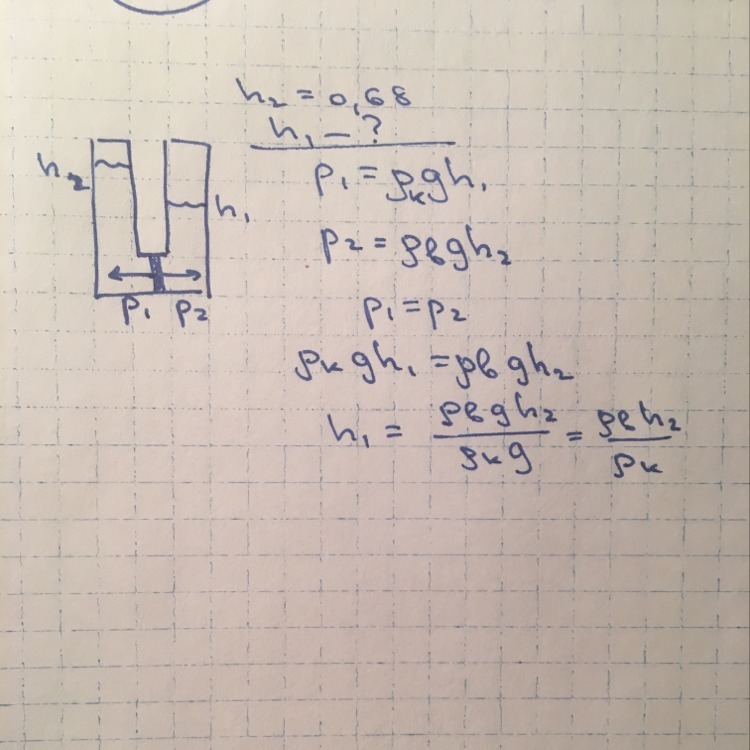 h₂ = 0,68
h₁ – ?
h₂
h₁
p₁ p₂
p₁ = ρₖgh₁
p₂ = ρвgh₂
p₁ = p₂
ρₖgh₁ = ρвgh₂
h₁ = ρвgh₂/ρₖg = ρвh₂/ρₖ